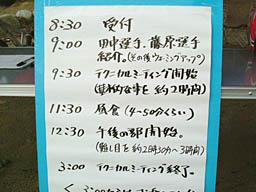 8:30 受付
9:00 田中選手、藤原選手
紹介。(その後ウォーミングアップ)
9:30 テクニカルミーティング開始
(具体的な事を約2時間)
11:30 昼食(4~50分くらい)
12:30 午後の部開始。
(軽し目を約2時30分~3時間)
3:00 テクニカルミーティング終了。